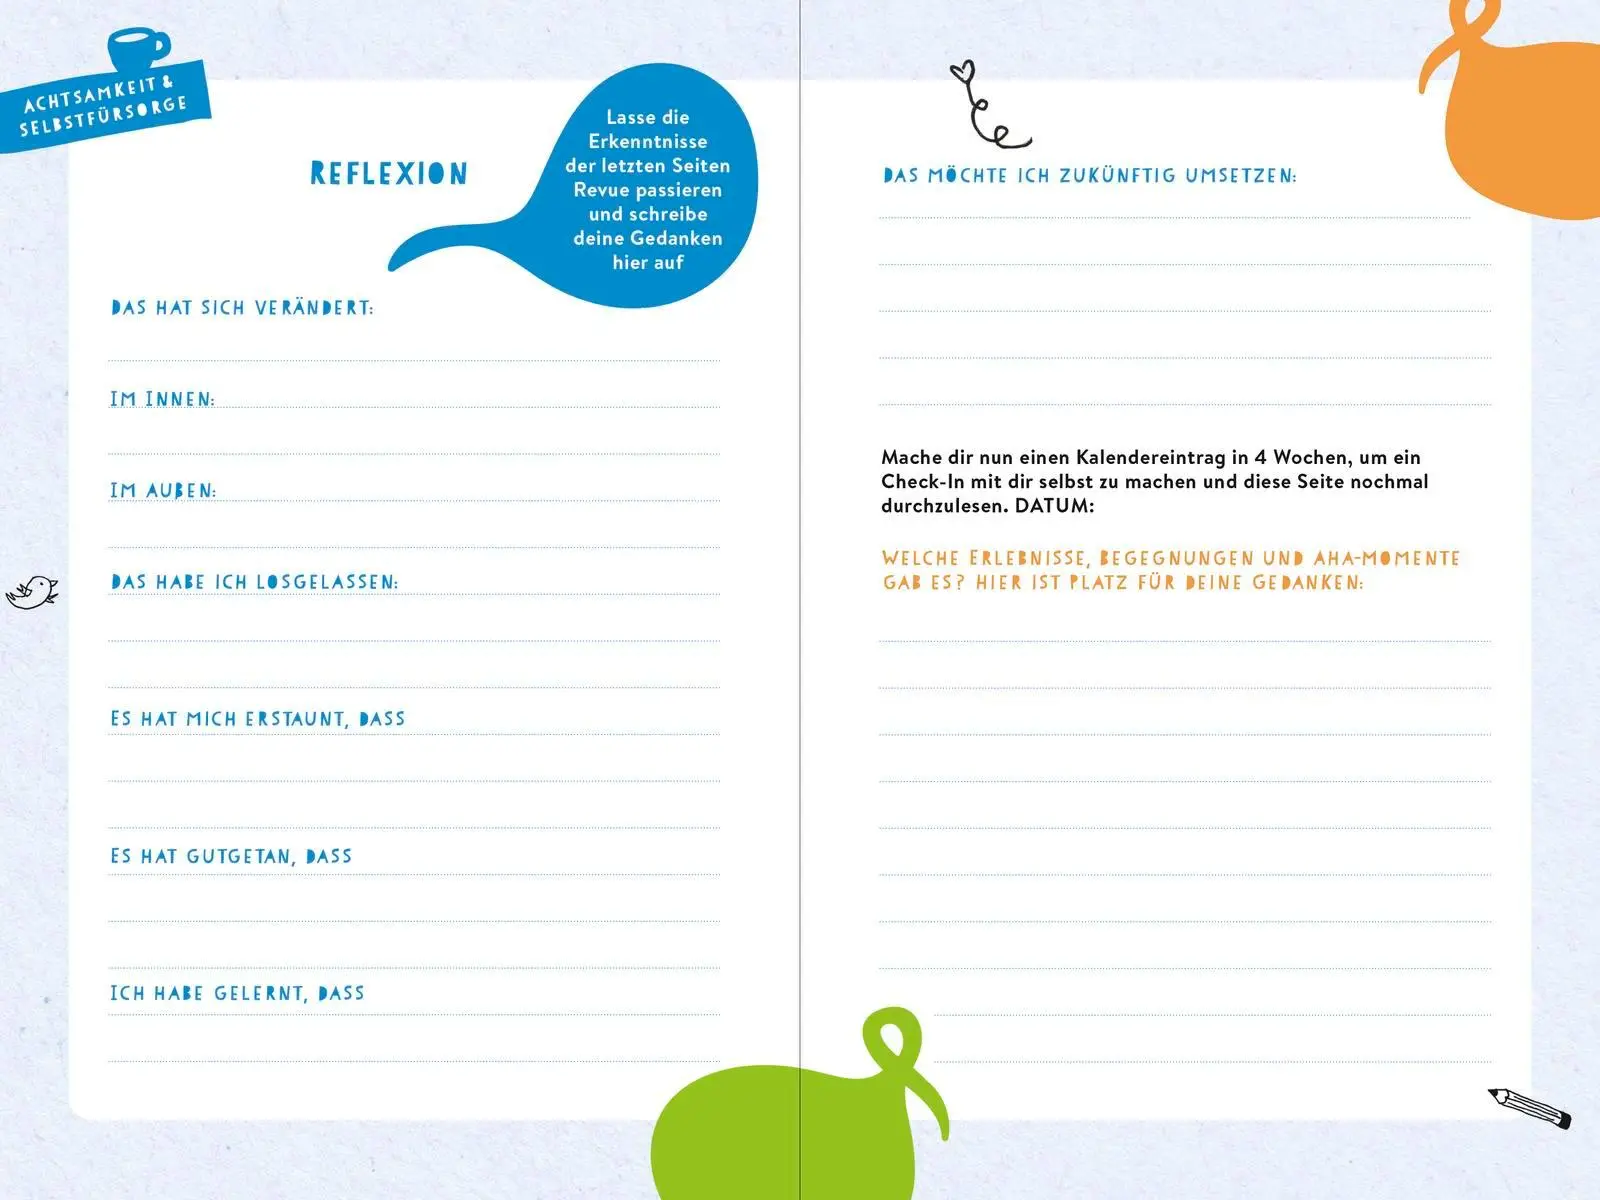 ACHTSAMKEIT &
SELBSTFÜRSORGE
REFLEXION
Lasse die
Erkenntnisse
der letzten Seiten
Revue passieren
und schreibe
deine Gedanken
hier auf
DAS HAT SICH VERÄNDERT:
IM INNEN:
IM AUßEN:
DAS HABE ICH LOSGELASSEN:
ES HAT MICH ERSTAUNT, DASS
ES HAT GUTGETAN, DASS
ICH HABE GELERNT, DASS
DAS MÖCHTE ICH ZUKÜNFTIG UMSETZEN:
Mache dir nun einen Kalendereintrag in 4 Wochen, um ein
Check-In mit dir selbst zu machen und diese Seite nochmal
durchzulesen. DATUM:
WELCHE ERLEBNISSE, BEGEGNUNGEN UND AHA-MOMENTE
GAB ES? HIER IST PLATZ FÜR DEINE GEDANKEN: